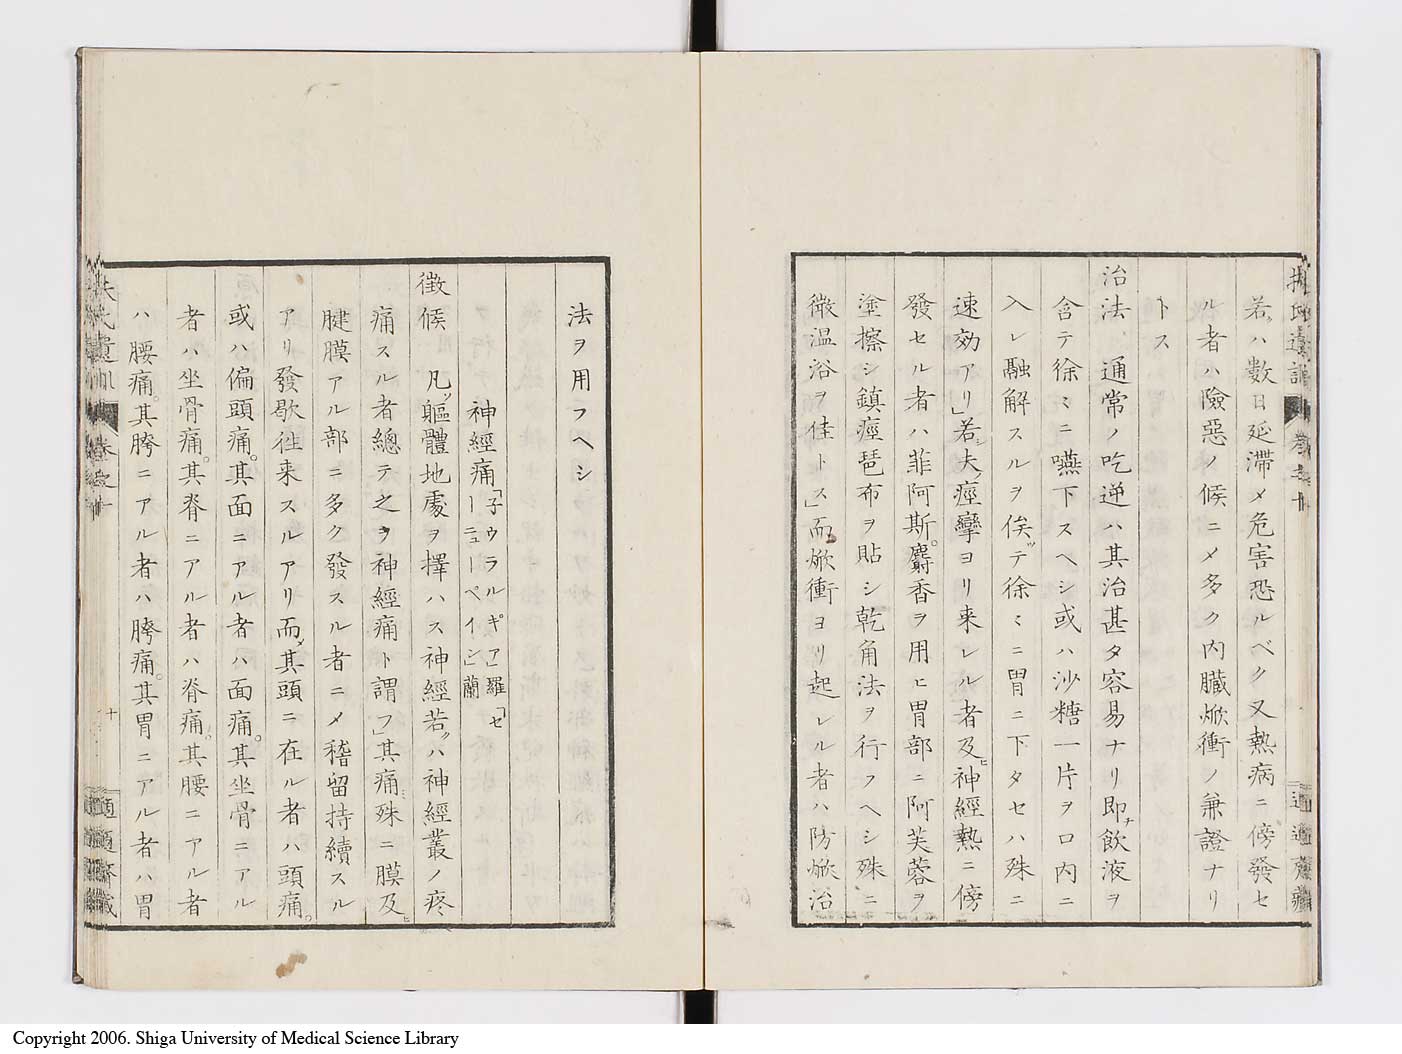 若ハ數日延滞メ危害恐ルベク又熱病ニ傍發セ
ル者ハ險惡ノ候ニメ多ク内臓焮衝ノ兼證ナリ
トス
治法　通常ノ吃逆ハ其治甚タ容易ナリ即ナ飲液ヲ
含テ徐ミニ嚥下スヘシ或ハ沙糖一片ヲ口内ニ
入レ融解スルヲ俟ッテ徐ミニ胃ニ下タセハ殊ニ
速効アリ」若シ夫痙攣ヨリ来レル者及ヒ神經熱ニ傍
發セル者ハ菲阿斯。麝香ヲ用ヒ胃部ニ阿芙蓉ヲ
塗擦シ鎮痙琶布ヲ貼シ乾角法ヲ行フヘシ殊ニ
微温浴ヲ佳トス」而焮衝ヨリ起レル者ハ防焮治
扶氏遺訓
卷之
十
適適齋藏
法ヲ用フヘシ
神經痛「子ウラルギア」羅「セーニューペイン」蘭
徴候　凡ソ軀體地處ヲ擇ハス神經若ハ神經叢ノ疼
痛スル者總テ之ヲ神經痛ト謂フ」其痛殊ニ膜及ヒ
腱膜アル部ニ多ク發スル者ニメ稽留持續スル
アリ發歇往来スルアリ而メ其頭ニ在ル者ハ頭痛。
或ハ偏頭痛。其面ニアル者ハ面痛。其坐骨ニアル
者ハ坐骨痛。其脊ニアル者ハ脊痛。其腰ニアル者
ハ腰痛。其胯ニアル者ハ胯痛。其胃ニアル者ハ胃
扶氏遺訓
卷之
十
適適齋藏
Copyright 2006. Shiga University of Medical Science Library